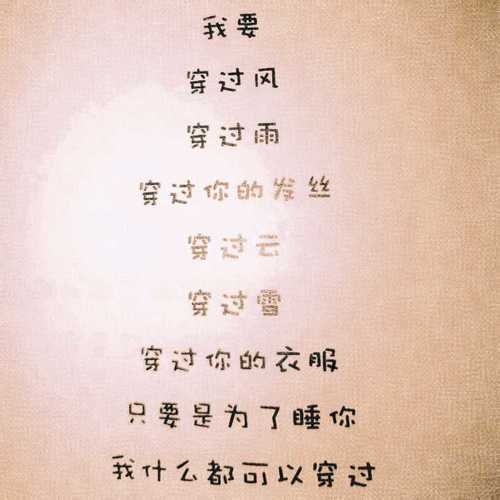 我要
穿过风
穿过雨
穿过你的发丝
穿过云
穿过雪
穿过你的衣服
只要是为了睡你
我什么都可以穿过